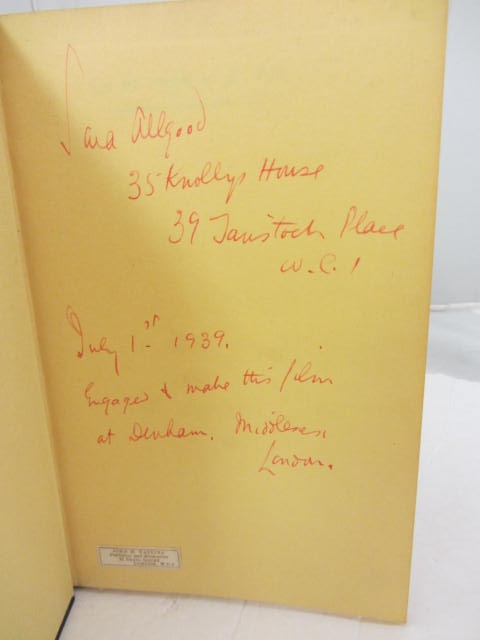 Sara Allgood
35 Knollys House
39 Tavistock Place
W.C.1
July 1st 1939.
Engaged to make this film
at Denham. Middlesex
London.